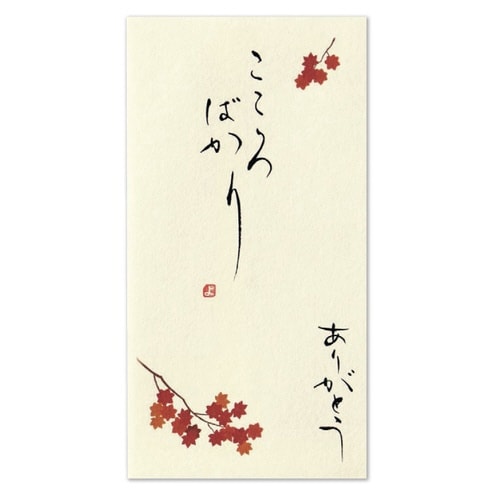 こころ
ばかり
よ
ありがとう